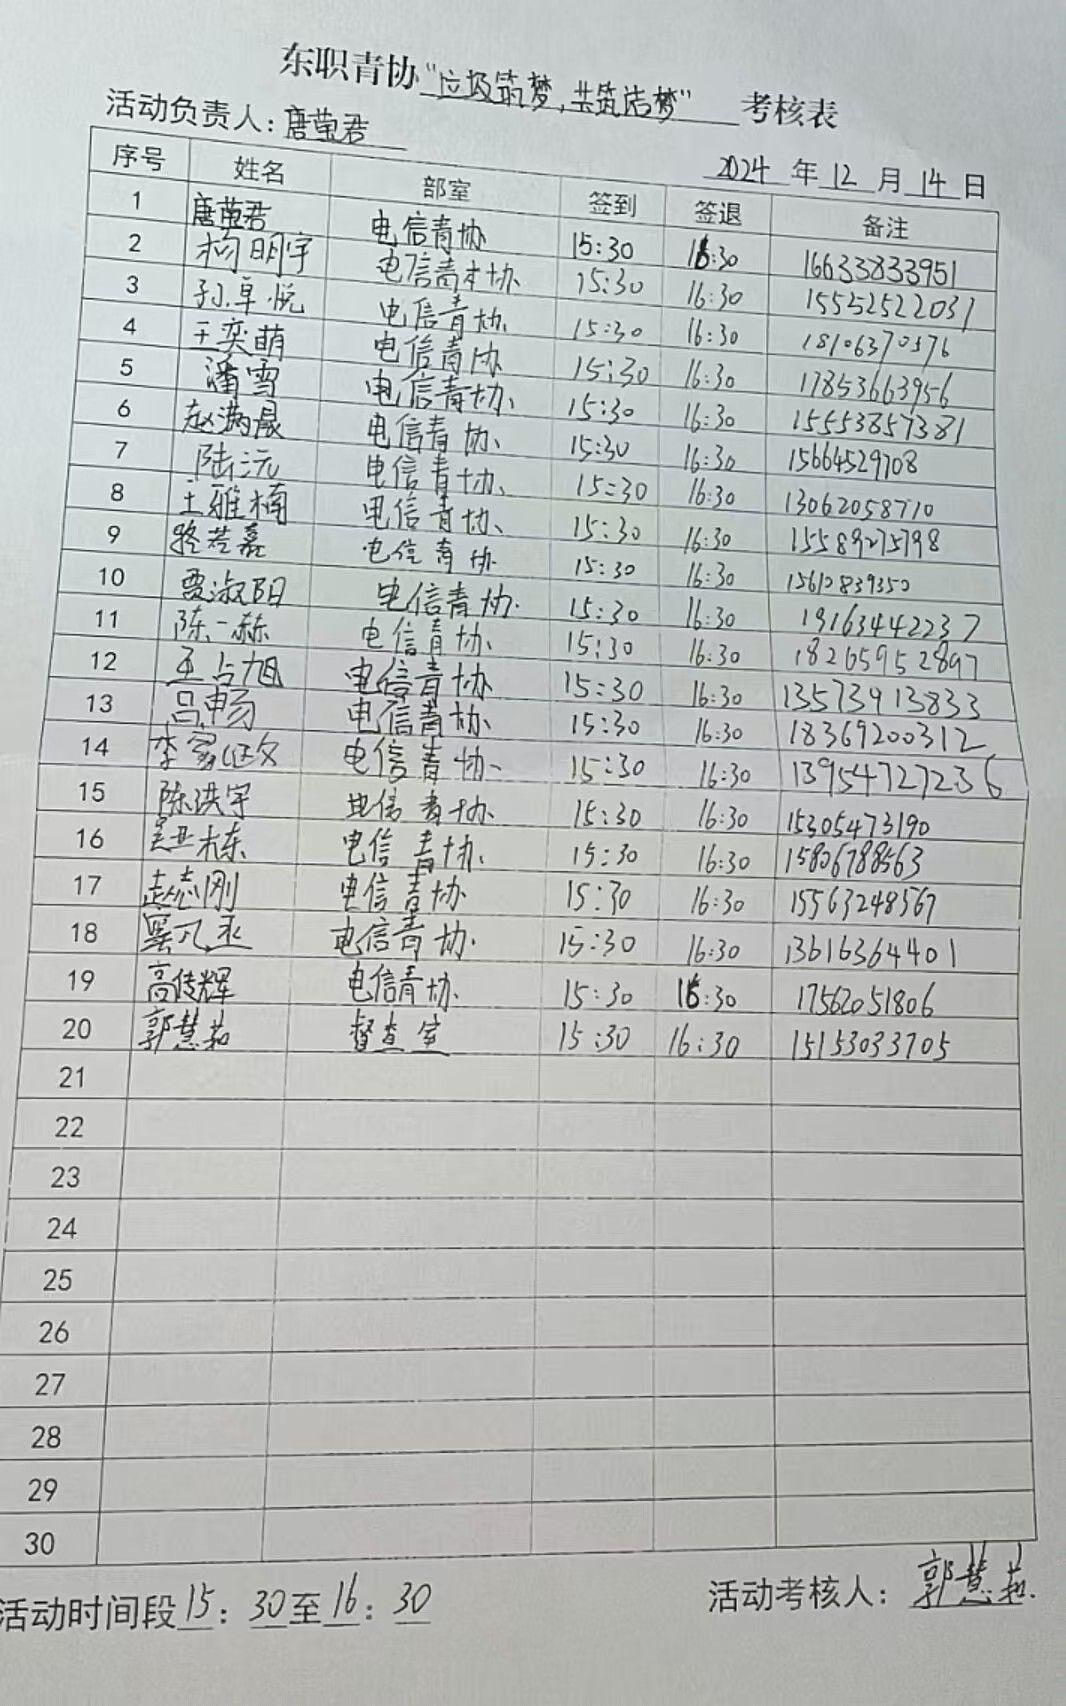 东职青协“垃圾筑梦，共筑洁梦” 考核表
活动负责人：唐莹君
2024 年 12 月 14 日
序号 姓名 部室 签到 签退 备注
1 唐莹君 电信青协 15:30 16:30 16633833951
2 杨明宇 电信青协 15:30 16:30 15552522031
3 孙卓悦 电信青协 15:30 16:30 18106370376
4 王奕萌 电信青协 15:30 16:30 17853663956
5 潘雪 电信青协 15:30 16:30 15553857381
6 赵满晨 电信青协 15:30 16:30 15664529708
7 陆沅 电信青协 15:30 16:30 13062058710
8 王雅楠 电信青协 15:30 16:30 15589275798
9 骆若磊 电信青协 15:30 16:30 15610839350
10 贾淑阳 电信青协 15:30 16:30 19163442237
11 陈一赫 电信青协 15:30 16:30 18265952897
12 王占旭 电信青协 15:30 16:30 13573913833
13 吕畅 电信青协 15:30 16:30 18369200312
14 李家 电信青协 15:30 16:30 13954727236
15 陈洪宇 电信青协 15:30 16:30 15305473190
16 吴亚东 电信青协 15:30 16:30 15806788563
17 赵志刚 电信青协 15:30 16:30 15563248567
18 电信青协 15:30 16:30 13616364401
19 高传辉 电信青协 15:30 16:30 17562051806
20 郭慧茹 督查室 15:30 16:30 15153033705
21
22
23
24
25
26
27
28
29
30
活动时间段 15：30至16：30
活动考核人：郭慧茹